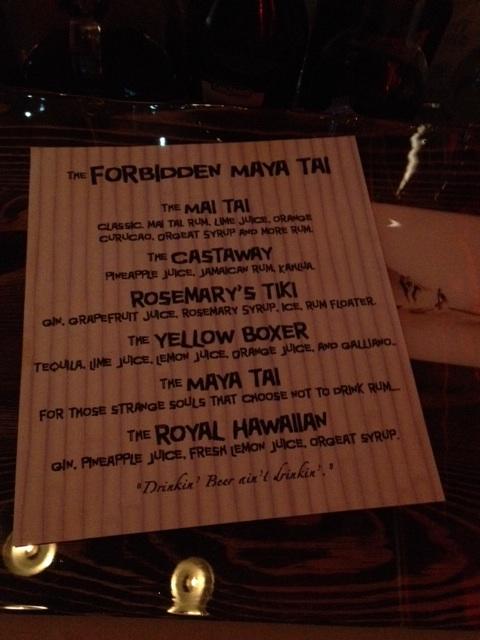 THE FORBIDDEN MAYA TAI
THE MAI TAI
CLASSIC MAI TAI RUM, LIME JUICE, ORANGE
CURUCAO, ORGEAT SYRUP AND MORE RUM.
THE CASTAWAY
PINEAPPLE JUICE, JAMAICAN RUM, KAHLUA.
ROSEMARY'S TIKI
GIN, GRAPEFRUIT JUICE, ROSEMARY SYRUP, ICE, RUM FLOATER.
THE YELLOW BOXER
TEQUILA, LIME JUICE, LEMON JUICE, ORANGE JUICE, AND GALLIANO..
THE MAYA TAI
FOR THOSE STRANGE SOULS THAT CHOOSE NOT TO DRINK RUM...
THE ROYAL HAWAIIAN
GIN, PINEAPPLE JUICE, FRESH LEMON JUICE, ORGEAT SYRUP.
"Drinkin' Beer ain't drinkin'."